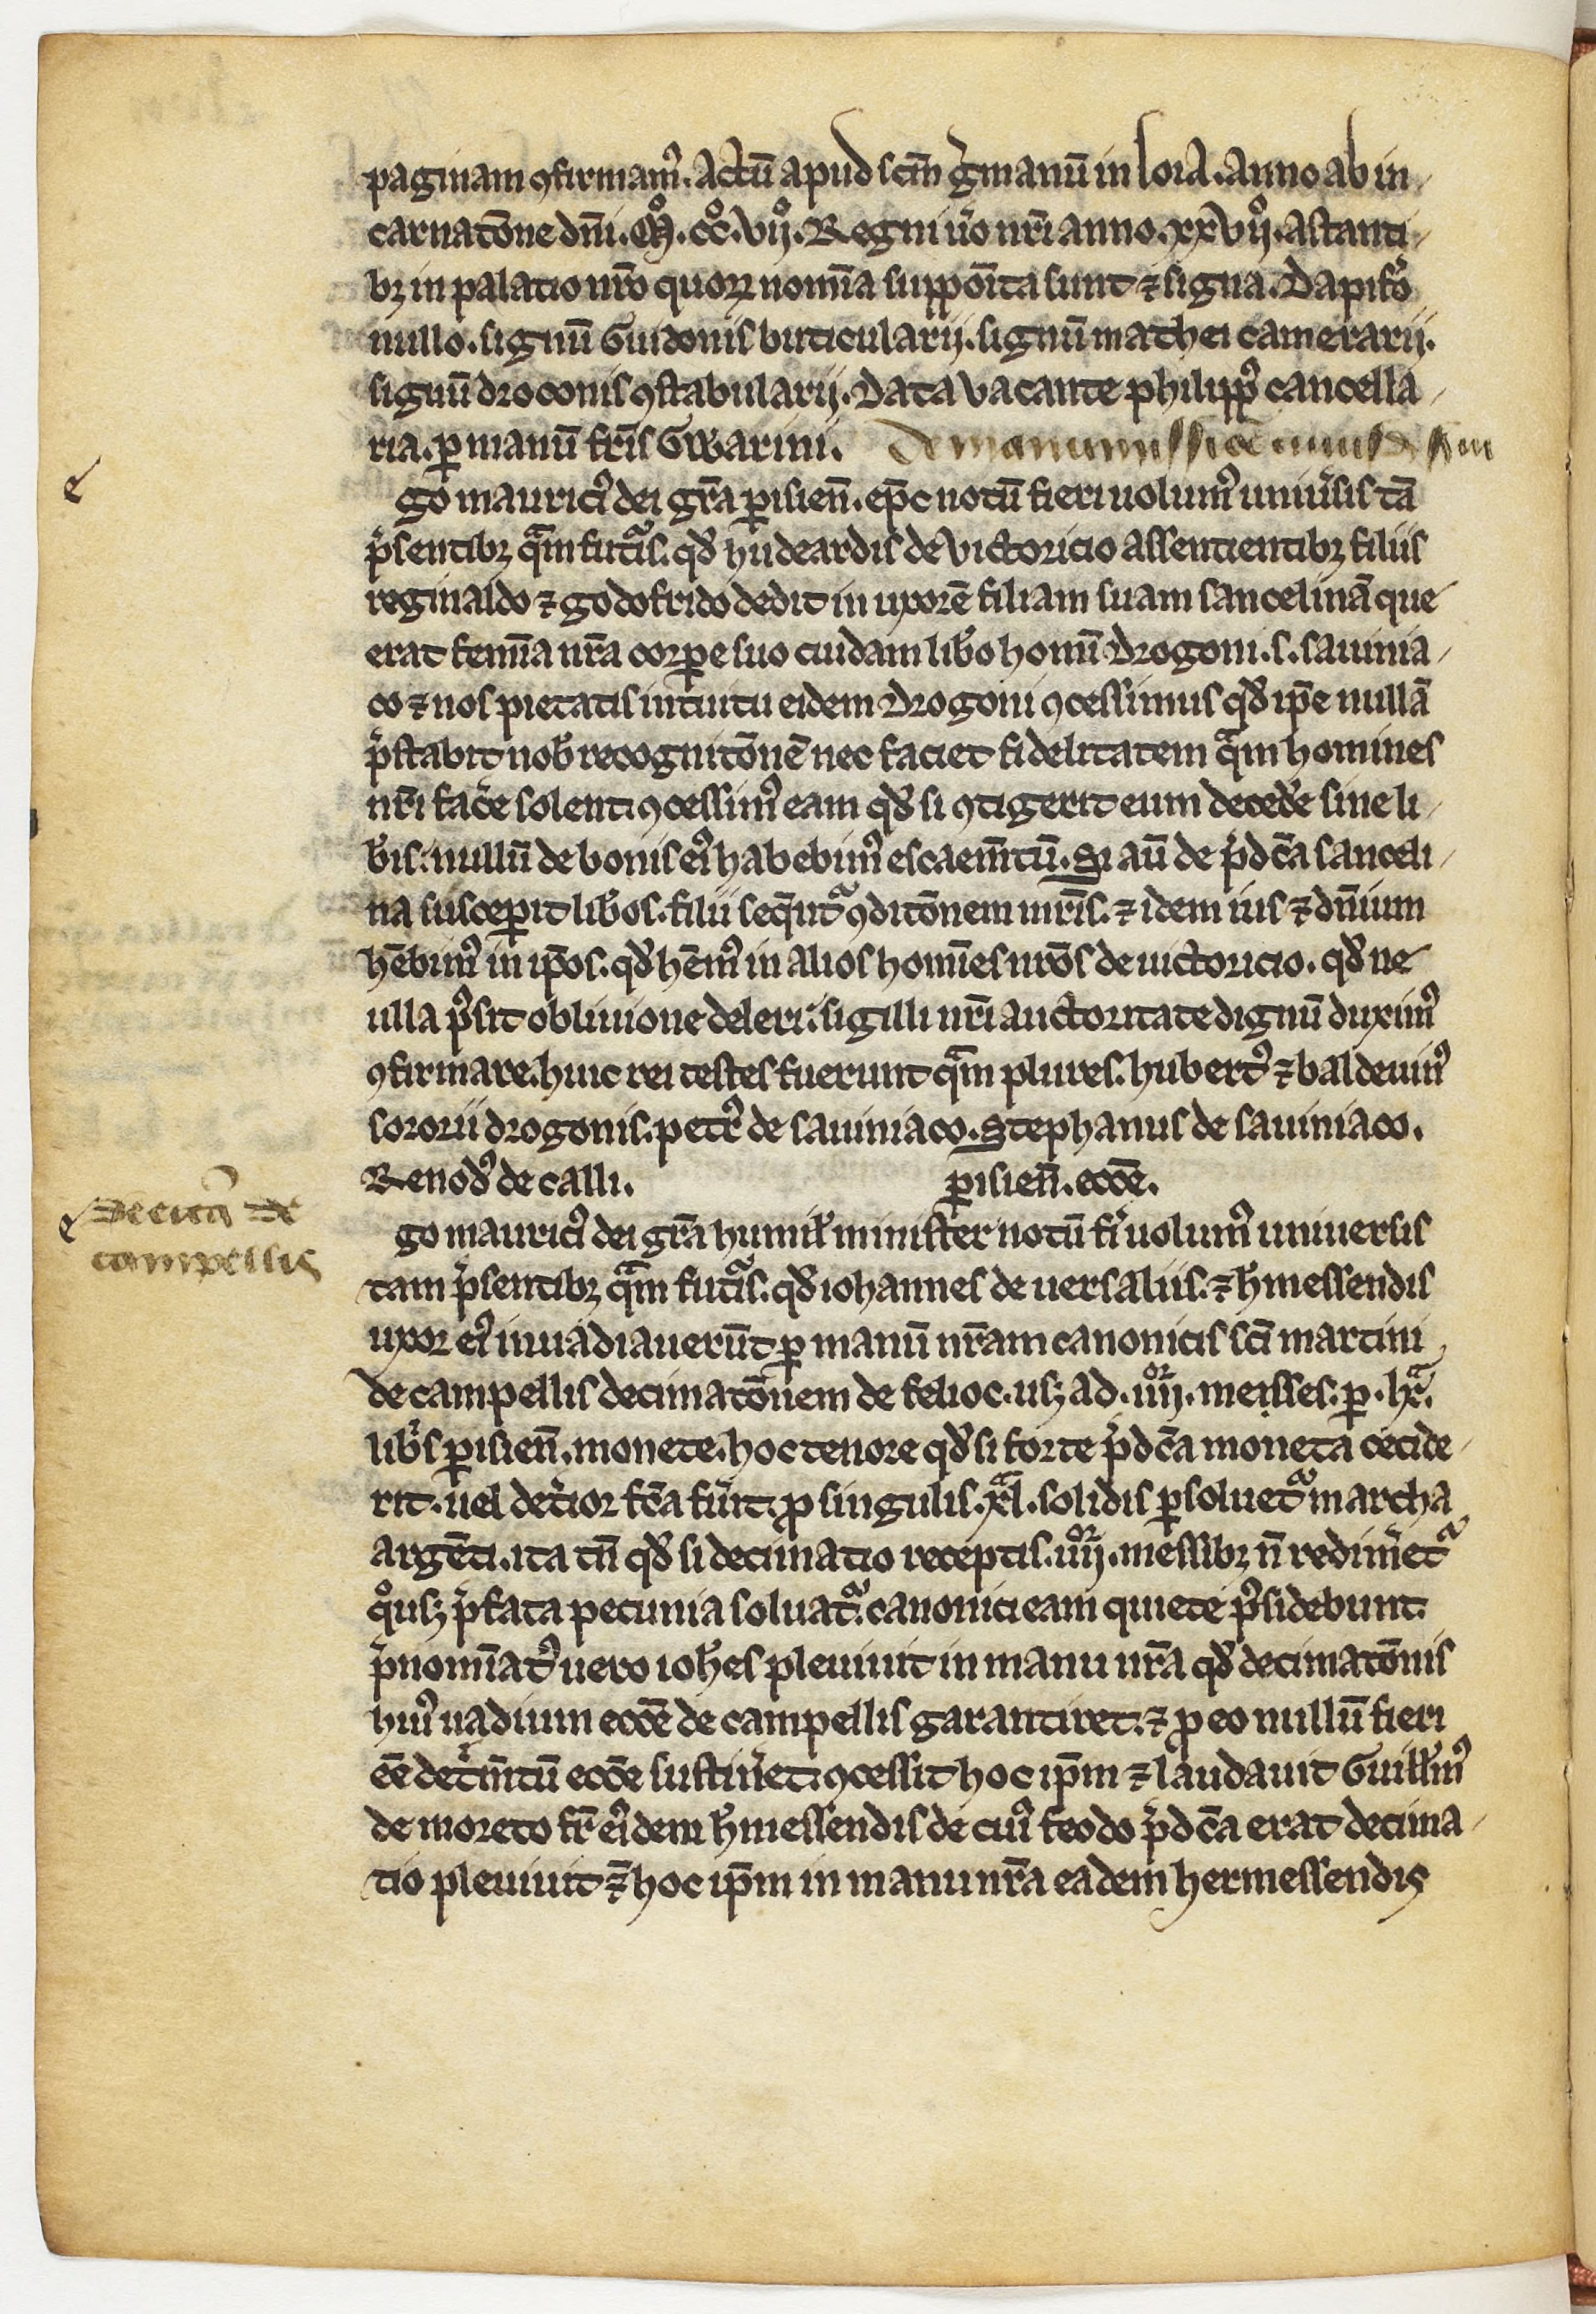 paginam ꝯfirmamꝰ. Actū apud scm̄ g̾manū in loia. Anno ab in-
carnatōne dn̄i. Mͦ. ccͦ. vijͦ. Regni u̾o nr̄i anno. xxͦvijͦ. astanti-
bꝫ in palatio nr̄o quoꝝ nomīa suppoīta sunt ⁊ signa. Dapifo̾
nullo. signū Guidonis buticularij. signū mathei camerarij.
signū droconis ꝯstabularij. Data vacante philippꝰ cancella-
ria. ꝑ manū fr̄is Gwarini. De manumissiōe
e go mauriciꝰ dei gr̄a ꝑisien̄. ep̄c notū fieri uolumꝰ uniu̾sis tā
p̾sentibꝫ qᵃm futᵃis. qđ hildeardis de victoricio assentientibꝫ filiis
reginaldo ⁊ godofrido dedit in uxorē filiam suam sancelinā que
erat femīa nr̄a corꝑe suo cuidam lib̾o homī Drogoni. s. sauinia-
co ⁊ nos pietatis intuitu eidem Drogoni ꝯcessimus qđ ip̄e nullā
p̾stabit nob̾ recognitōnē nec faciet fidelitatem qᵃm homines
nr̄i fac̾e solent ꝯcessimꝰ eam qđ si ꝯtigerit eum deced̾e sine li-
b̾is. nullū de bonis eiꝰ habebimꝰ escaemtū. Si aū de p̾dc̄a sanceli-
na susceꝑit lib̾os. filii seq̄ntᵃ ꝯditōnem mr̄is. ⁊ idem ius ⁊ dn̄ium
hēbimꝰ in ip̄os. qđ hēmꝰ in alios homīes nr̄os de uictoricio. qđ ne
ulla p̾sit obliuione deleri. sigilli nr̄i auctoritate dignū duximꝰ
ꝯfirmare. huic rei testes fuerunt qᵃm plures. hubertꝰ ⁊ baldeuinꝰ
sororii drogonis. petrꝰ de sauiniaco. Stephanus de sauiniaco.
Renodꝰ de calli. ꝑisien̄. ecc̄e.
Decīa de
campellis
e go mauriciꝰ dei gr̄a humil̾ minister notū fi̾ uolumꝰ uniuersis
tam p̾sentibꝫ qᵃm futᵃis. qđ iohannes de uersaliis. ⁊ h̾messendis
uxor eiꝰ inuadiauerūt ꝑ manū nr̄am canonicis sc̄i martini
de campellis decimatōnem de felioc. usꝫ ad. iiijͦʳ. messes. ꝑ. lxᵃ.
lib̾s ꝑisien̄. monete. hoc tenore qđ si forte p̾dc̄a moneta cecide-
rit. uel det̾ior fc̄a fu̾it. ꝓ singulis. xlᵃ. solidis ꝑsoluetᵃ marcha
argēti. ita tn̄ qđ si decimatio receptis. iiijͦʳ. messibꝫ n̄ redim̾etᵃ
qͦusꝫ p̾fata pecunia soluatᵃ. canonici eam quiete p̾sidebunt.
p̾nomīatꝰ uero ioh̾es pleuiuit in manu nr̄a qđ decimatōnis
huiꝰ uadium ecc̄e de campellis garantiret. ⁊ ꝓ eo nullū fieri
eē det̾mtū ecc̄e sustin̾et. ꝯcessit hoc ip̄m ⁊ laudauit Guill̾mꝰ
de moreto fr̄ eiꝰdem h̾messendis de cuiꝰ feodo p̾dc̄a erat decima-
tio pleuiuit ⁊ hoc ip̄m in manu nr̄a eadem hermessendis